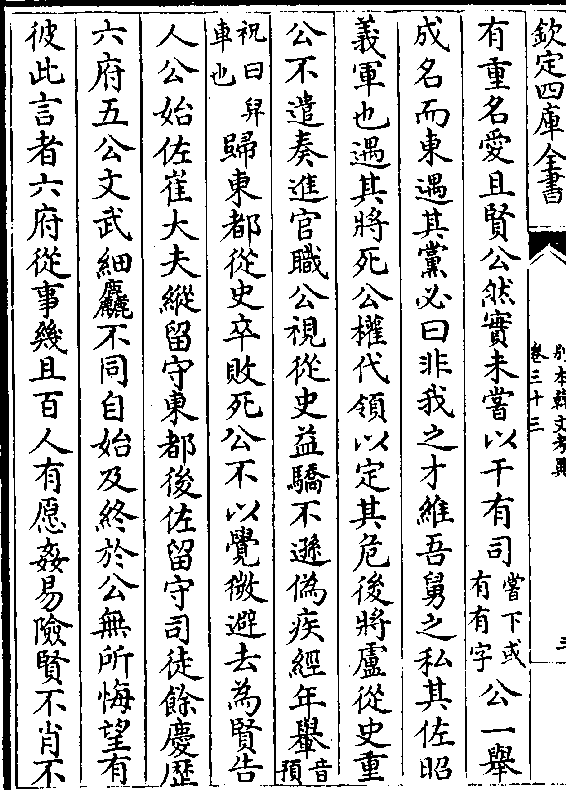 欽定四庫全書
别本韓文考異
卷三十三
三
有重名愛且賢公然實未嘗以干有司嘗下或有有字公一舉
成名而東遇其黨必曰非我之才維吾舅之私其佐昭
義軍也遇其將死公權代領以定其危後將盧從史重
公不遣奏進官職公視從史益驕不遜偽疾經年轝音預
祝曰舁車也歸東都從史卒敗死公不以覺微避去為賢告
人公始佐崔大夫縱留守東都後佐留守司徒餘慶歴
六府五公文武細麤不同自始及終於公無所悔望有
彼此言者六府從事幾且百人有愿姦易險賢不肖不